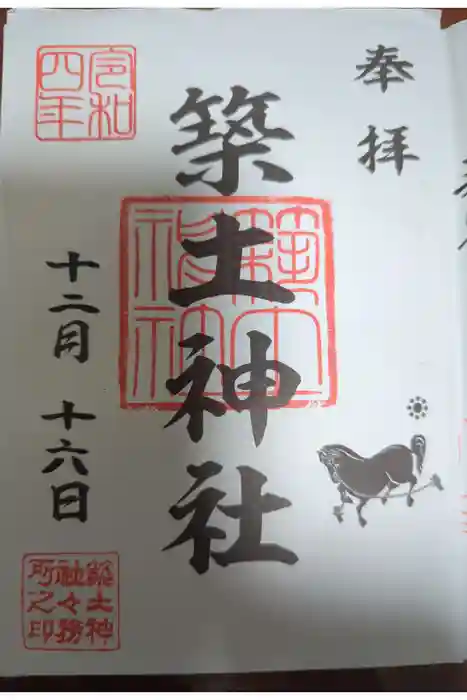 奉拝
築土神社
築土神社
令和四年
十二月 十六日
築土神社々務所之印